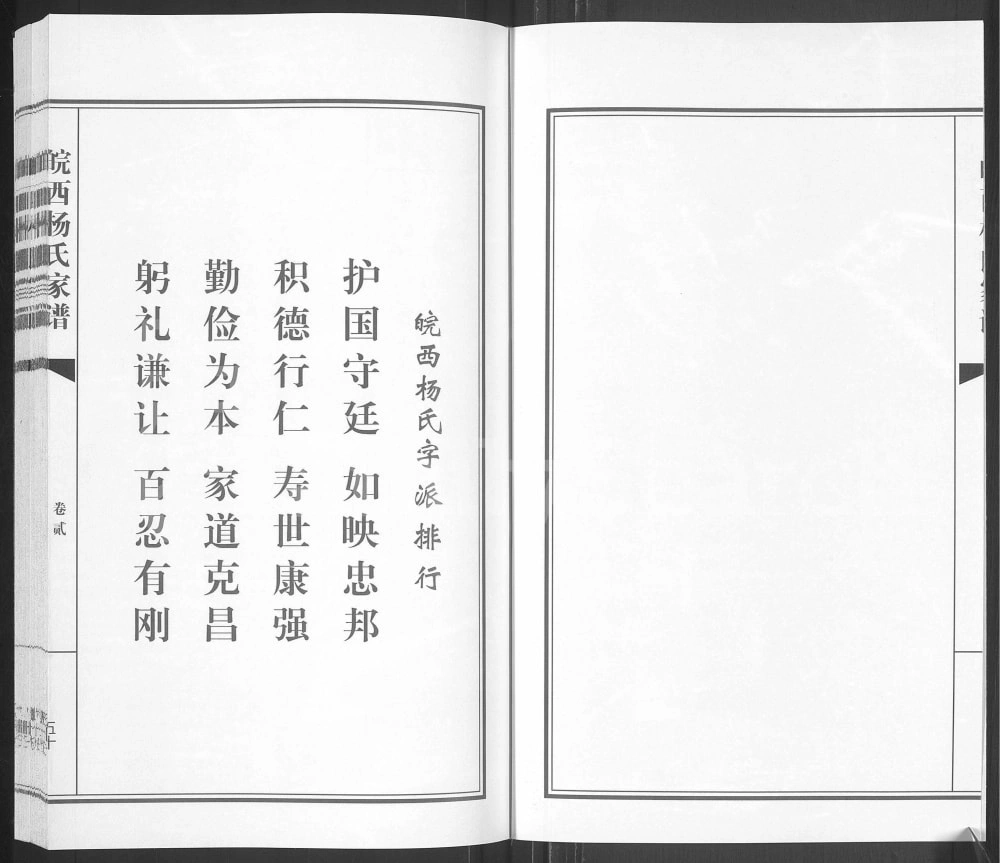 皖西杨氏字派排行
护国守廷 如映忠邦
积德行仁 寿世康强
勤俭为本 家道克昌
躬礼谦让 百忍有刚
皖西杨氏家谱
卷贰
五十